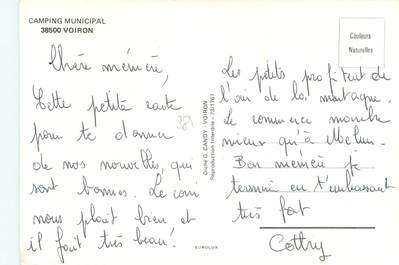 CAMPING MUNICIPAL
38500 VOIRON
Chère mémère,
Cette petite carte
pour te donner
de nos nouvelles, qui
sont bonnes. Le coin
nous plait bien et
il fait très beau!
Cliché G. CANDY - VOIRON
Reproduction Interdite - 73/1767
EUROLUX
Couleurs
Naturelles
Les petits profitent de
l'air de la montagne.
Le commerce marche
mieux qu'à Melun.
Bon mémère je
termine en t'embrassant
très fort